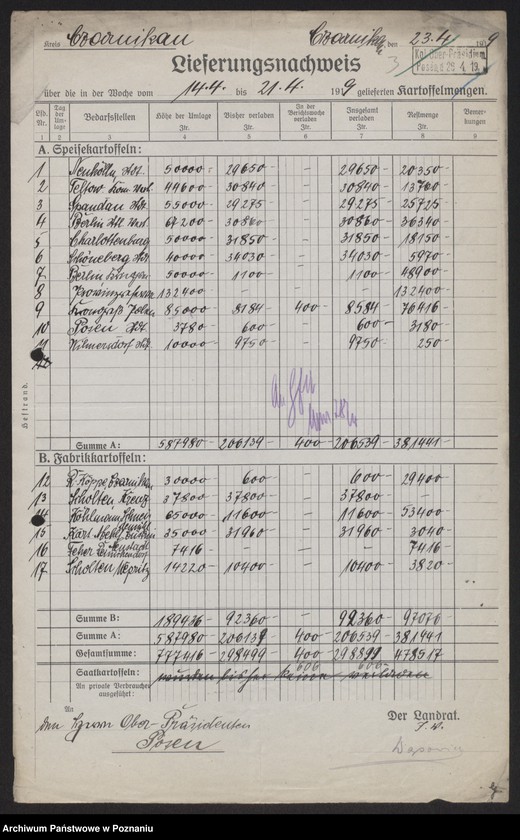 Kreis Czarnikau Czarnikau, den 23.4. 1919
Kgl. Ober-Präsidium
Posen 26.4.19.
Lieferungsnachweis
über die in der Woche vom 14.4. bis 21.4. 1919 gelieferten Kartoffelmengen.
Lfd. Nr. Tag der Umlage Bedarfsstellen Höhe der Umlage Ztr. Bisher verladen Ztr. In der Berichtswoche verladen Ztr. Insgesamt verladen Ztr. Restmenge Ztr. Bemerkungen
1 2 3 4 5 6 7 8 9
A. Speisekartoffeln:
1 Neukölln 50000 29650 - 29650 20350
2 Teltow 44600 30840 - 30840 13760
3 Spandau 55000 29275 - 29275 25725
4 Berlin 67200 30860 - 30860 36340
5 Charlottenburg 50000 31850 - 31850 18150
6 Schöneberg 40000 34030 - 34030 5970
7 Berlin 50000 1100 - 1100 48900
8 132400 - - - 132400
9 Kongreß Polen 85000 8184 400 8584 76416
10 Posen 3780 600 - 600 3180
11 Wilmersdorf 10000 9750 - 9750 250
Heftrand.
Summe A: 587980 206139 400 206539 381441
B. Fabrikkartoffeln:
12 Köppe, Czarnikau 30000 600 - 600 29400
13 Scholten Kreuz 37800 37800 - 37800 -
14 Köhlmann 65000 11600 - 11600 53400
15 35000 31960 - 31960 3040
16 7416 - - - 7416
17 Scholten 14220 10400 - 10400 3820
Summe B: 189436 92360 - 92360 97076
Summe A: 587980 206139 400 206539 381441
Gesamtsumme: 777416 298499 400 298899 478517
Saatkartoffeln: wurden bisher keine verladen 600 600
An private Verbraucher ausgeführt:
An
den Herrn Ober-Präsidenten
Posen
Der Landrat.
J. V.
Archiwum Państwowe w Poznaniu